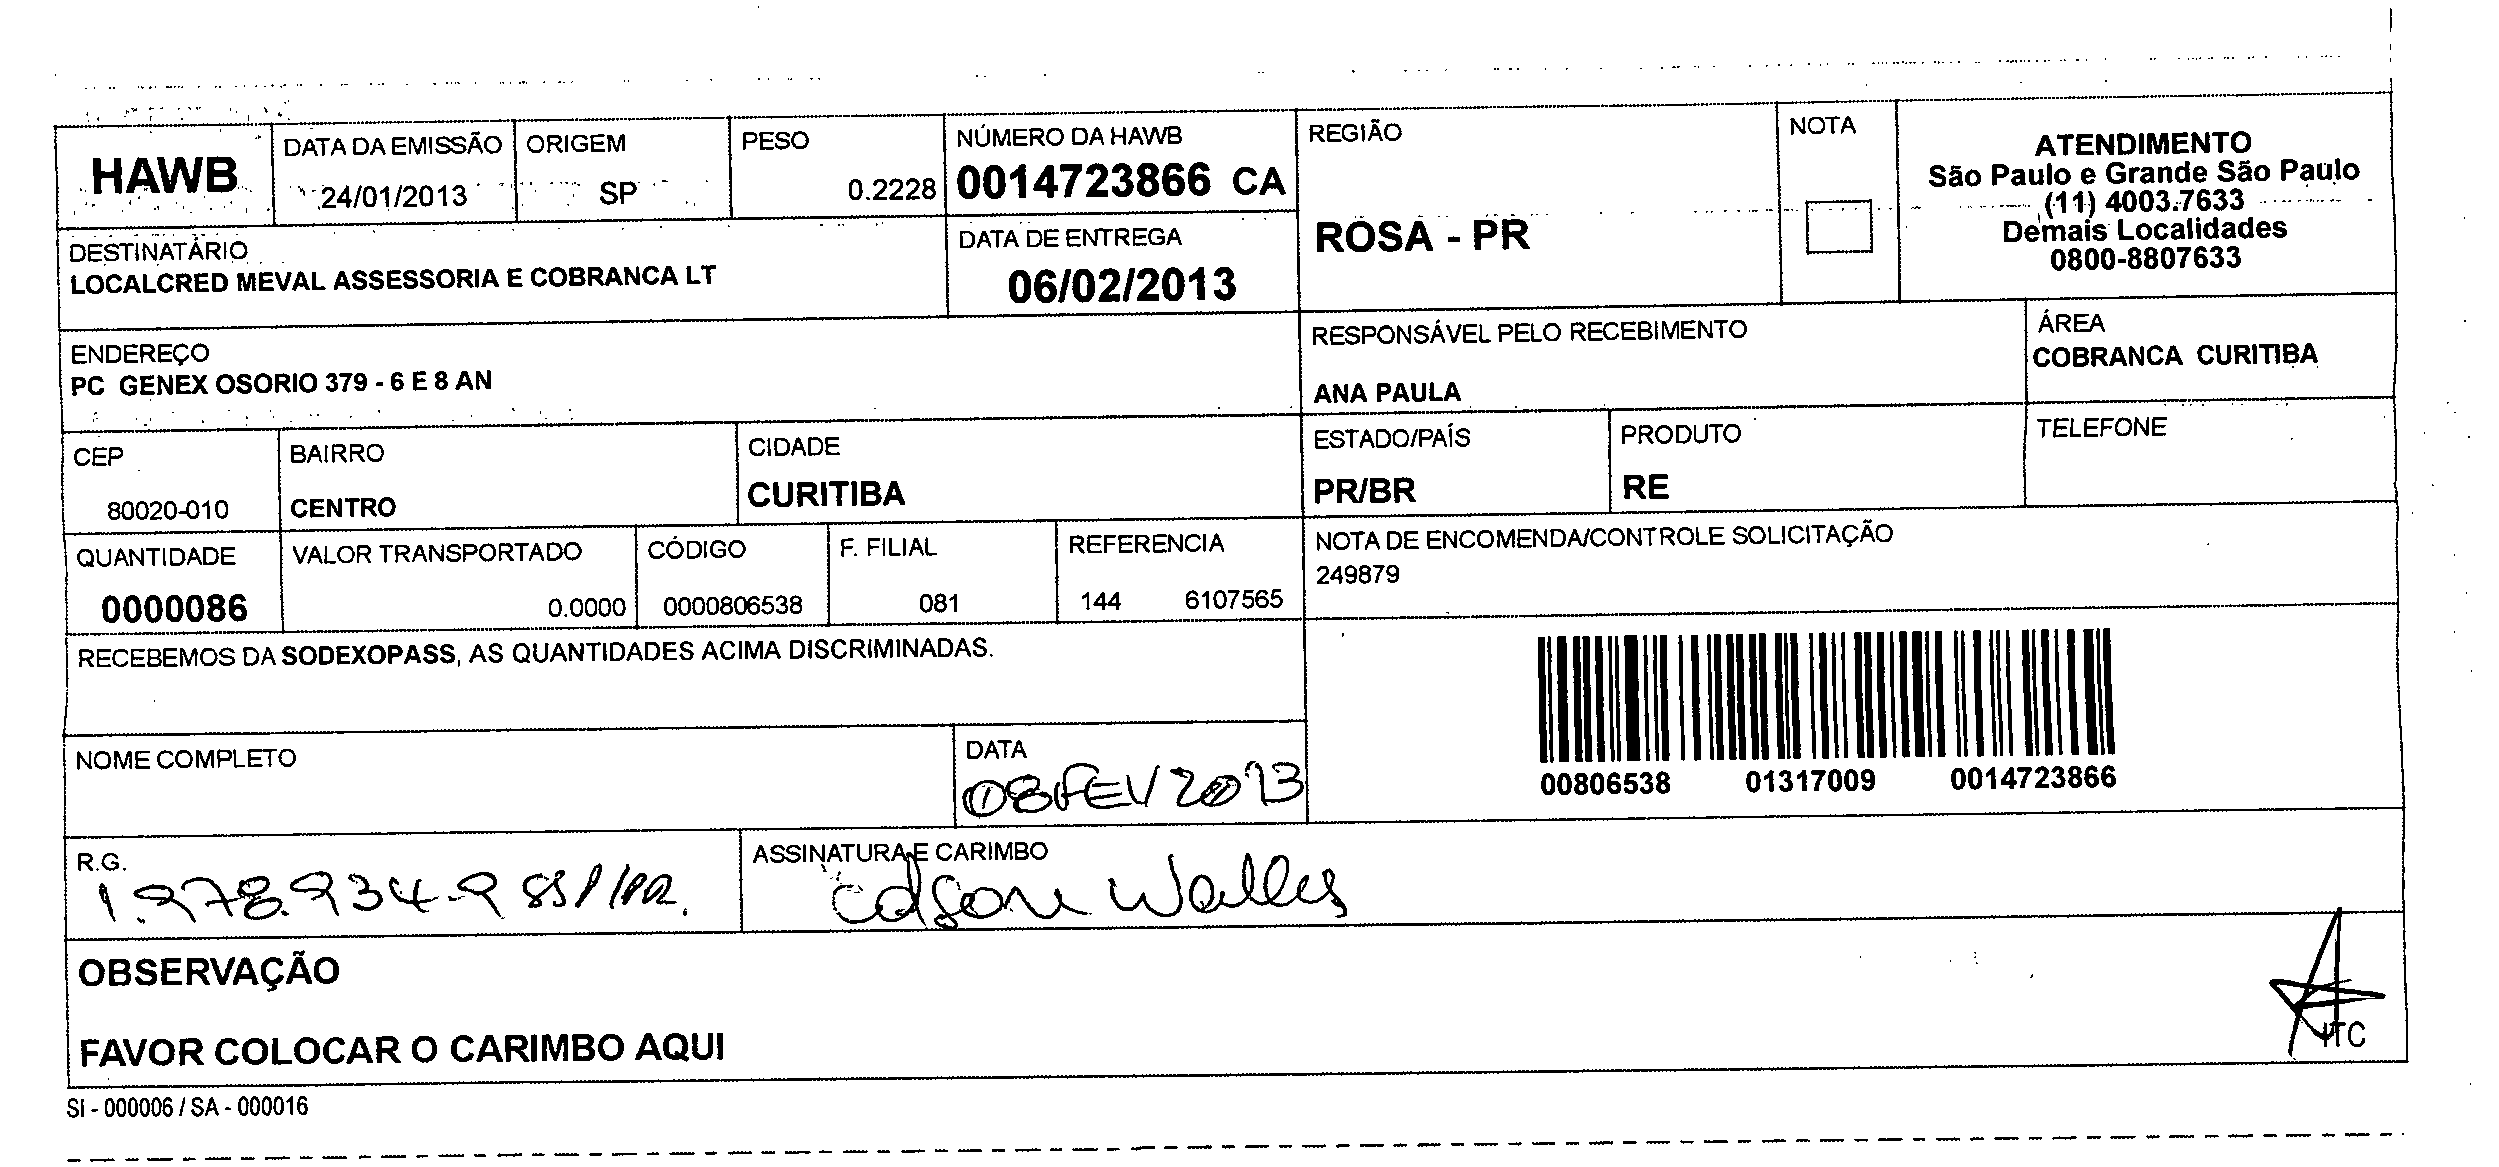 HAWB
DATA DA EMISSÃO
24/01/2013
ORIGEM
SP
PESO
0.2228
NÚMERO DA HAWB
0014723866 CA
REGIÃO
ROSA - PR
NOTA
ATENDIMENTO
São Paulo e Grande São Paulo
(11) 4003.7633
Demais Localidades
0800-8807633
DESTINATÁRIO
LOCALCRED MEVAL ASSESSORIA E COBRANCA LT
DATA DE ENTREGA
06/02/2013
ENDEREÇO
PC GENEX OSORIO 379 - 6 E 8 AN
RESPONSÁVEL PELO RECEBIMENTO
ANA PAULA
ÁREA
COBRANCA CURITIBA
CEP
80020-010
BAIRRO
CENTRO
CIDADE
CURITIBA
ESTADO/PAÍS
PR/BR
PRODUTO
RE
TELEFONE
QUANTIDADE
0000086
VALOR TRANSPORTADO
0.0000
CÓDIGO
0000806538
F. FILIAL
081
REFERENCIA
144 6107565
NOTA DE ENCOMENDA/CONTROLE SOLICITAÇÃO
249879
RECEBEMOS DA SODEXOPASS, AS QUANTIDADES ACIMA DISCRIMINADAS.
00806538 01317009 0014723866
NOME COMPLETO
DATA
08 FEV 2013
R.G.
1.978.934-9 SSP/PR.
ASSINATURA E CARIMBO
Edson Walles
OBSERVAÇÃO
FAVOR COLOCAR O CARIMBO AQUI
ITC
SI - 000006 / SA - 000016